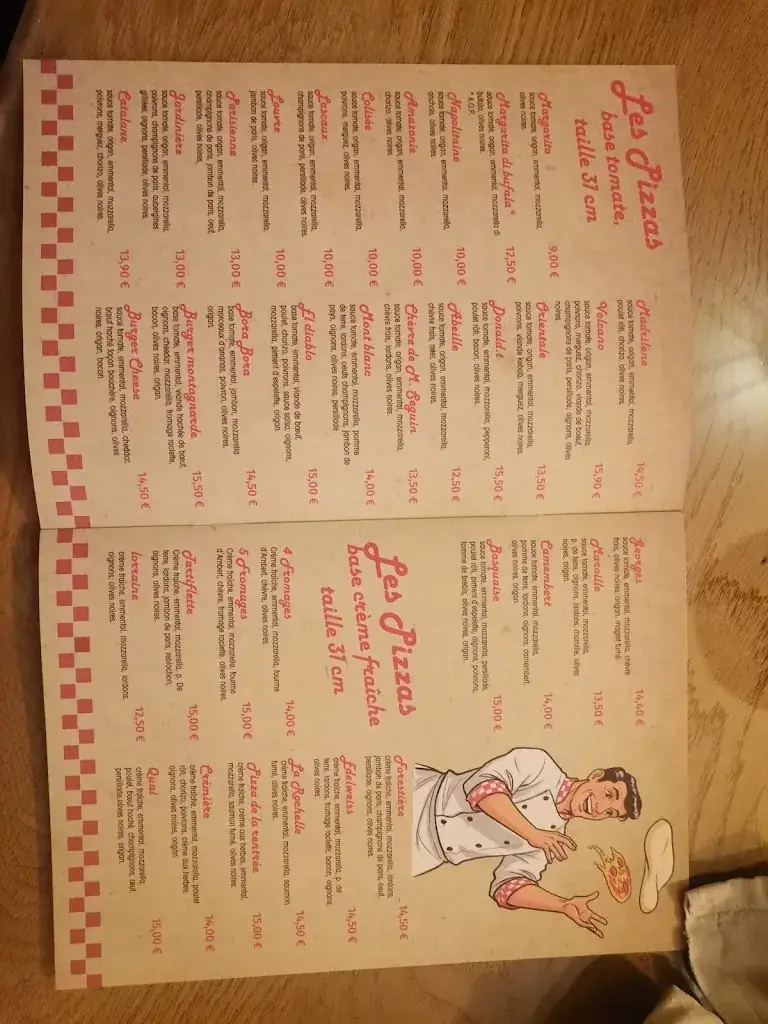 Les Pizzas
base tomate,
taille 31 cm
Margarita
sauce tomate, origan, emmental, mozzarella,
olives noires.
9,00 €
Margarita di bufala *
sauce tomate, origan, emmental, mozzarella di
bufala, olives noires.
* A.O.P.
12,50 €
Napolitaine
sauce tomate, origan, emmental, mozzarella,
anchois, olives noires.
10,00 €
Amazonie
sauce tomate, origan, emmental, mozzarella,
chorizo, olives noires.
10,00 €
Colisée
sauce tomate, origan, emmental, mozzarella,
poivrons, merguez, olives noires.
10,00 €
Lascaux
sauce tomate, origan, emmental, mozzarella,
champignons de paris, persillade, olives noires.
10,00 €
Louvre
sauce tomate, origan, emmental, mozzarella,
jambon de paris, olives noires.
10,00 €
Parisienne
sauce tomate, origan, emmental, mozzarella,
champignons de paris, jambon de paris, oeuf,
persillade, olives noires.
13,00 €
Jardinière
sauce tomate, origan, emmental, mozzarella,
poivrons, champignons de paris, aubergines
grillées, oignons, persillade, olives noires.
13,00 €
Catalane
sauce tomate, origan, emmental, mozzarella,
poivrons, merguez, chorizo, olives noires.
13,90 €
Madrilène
sauce tomate, origan, emmental, mozzarella,
poulet rôti, chorizo, olives noires.
14,50 €
Volcano
sauce tomate, origan, emmental, mozzarella,
poivrons, merguez, chorizo, viande de boeuf,
champignons de paris, persillade, oignons, olives
noires
15,90 €
Orientale
sauce tomate, origan, emmental, mozzarella,
poivrons, viande kebab, merguez, olives noires
13,50 €
Donald.t
sauce tomate, emmental, mozzarella, pepperoni,
poulet rôti, bacon, olives noires.
15,50 €
Abeille
sauce tomate, origan, emmental, mozzarella,
chèvre frais, miel, olives noires.
12,50 €
Chèvre de M. Seguin
sauce tomate, origan, emmental, mozzarella,
chèvre frais, lardons, olives noires.
13,50 €
Mont blanc
sauce tomate, emmental, mozzarella, pomme
de terre, lardons, oeufs champignons, jambon de
pays, oignons, olives noires, persillade.
14,00 €
El diablo
base tomate, emmental, viande de bœuf,
poulet, chorizo, poivrons, sauce salsa, oignons,
mozzarella, piment d'espelette, origan.
15,00 €
Bora Bora
base tomate, emmental, jambon, mozzarella
morceaux d'ananas, poivron, olives noires,
origan.
14,50 €
Burger montagnarde
base tomate, emmental, viande hachée de bœuf,
oignons, cheddar, mozzarella, fromage raclette,
bacon, olives noires, origan.
15,50 €
Burger Cheese
sauce tomate, emmental, mozzarella, cheddar,
bœuf haché façon bouchère, oignons, olives
noires, origan, bacon.
14,50 €
Georges
sauce tomate, emmental, mozzarella, chèvre
frais, olives noires, origan, magret fumé.
14,40 €
Maroille
sauce tomate, emmental, mozzarella,
p. de terre, oignons, lardons, maroille, olives
noires, origan.
13,50 €
Camembert
sauce tomate, emmental, mozzarella,
pomme de terre, lardons, oignons, camembert,
olives noires, origan.
14,00 €
Basquaise
sauce tomate, emmental, mozzarella, persillade,
poulet rôti, piment d'espelette, oignons, poivrons,
tomme de brebis, olives noires, origan.
15,00 €
Les Pizzas
base crème fraîche
taille 31 cm
4 Fromages
Crème fraîche, emmental, mozzarella, fourme
d'Ambert, chèvre, olives noires.
14,00 €
5 Fromages
Crème fraîche, emmental, mozzarella, fourme
d'Ambert, chèvre, fromage raclette, olives noires.
15,00 €
Tartiflette
Crème fraîche, emmental, mozzarella, p. De
terre, lardons, jambon de paris, reblochon,
oignons, olives noires.
15,00 €
lorraine
crème fraîche, emmental, mozzarella, lardons,
oignons, olives noires.
12,50 €
Forestière
crème fraîche, emmental, mozzarella, lardons,
jambon de paris, champignons de paris, œuf,
persillade, oignons, olives noires.
14,50 €
Edelweiss
crème fraîche, emmental, mozzarella, p. de
terre, lardons, fromage raclette, bacon, oignons,
olives noires.
14,50 €
La Rochelle
crème fraîche, emmental, mozzarella, saumon
fumé, olives noires.
14,50 €
Pizza de la rentrée
crème fraîche, crème aux herbes, emmental,
mozzarella, saumon fumé, olives noires.
15,00 €
Crémière
crème fraîche, emmental, mozzarella, poulet
rôti, chorizo, poivrons, crème aux herbes,
oignons, olives noires, origan.
14,00 €
Quai
crème fraîche, emmental, mozzarella,
poulet, bœuf haché, champignons, œuf,
persillade,olives noires, origan.
15,00 €